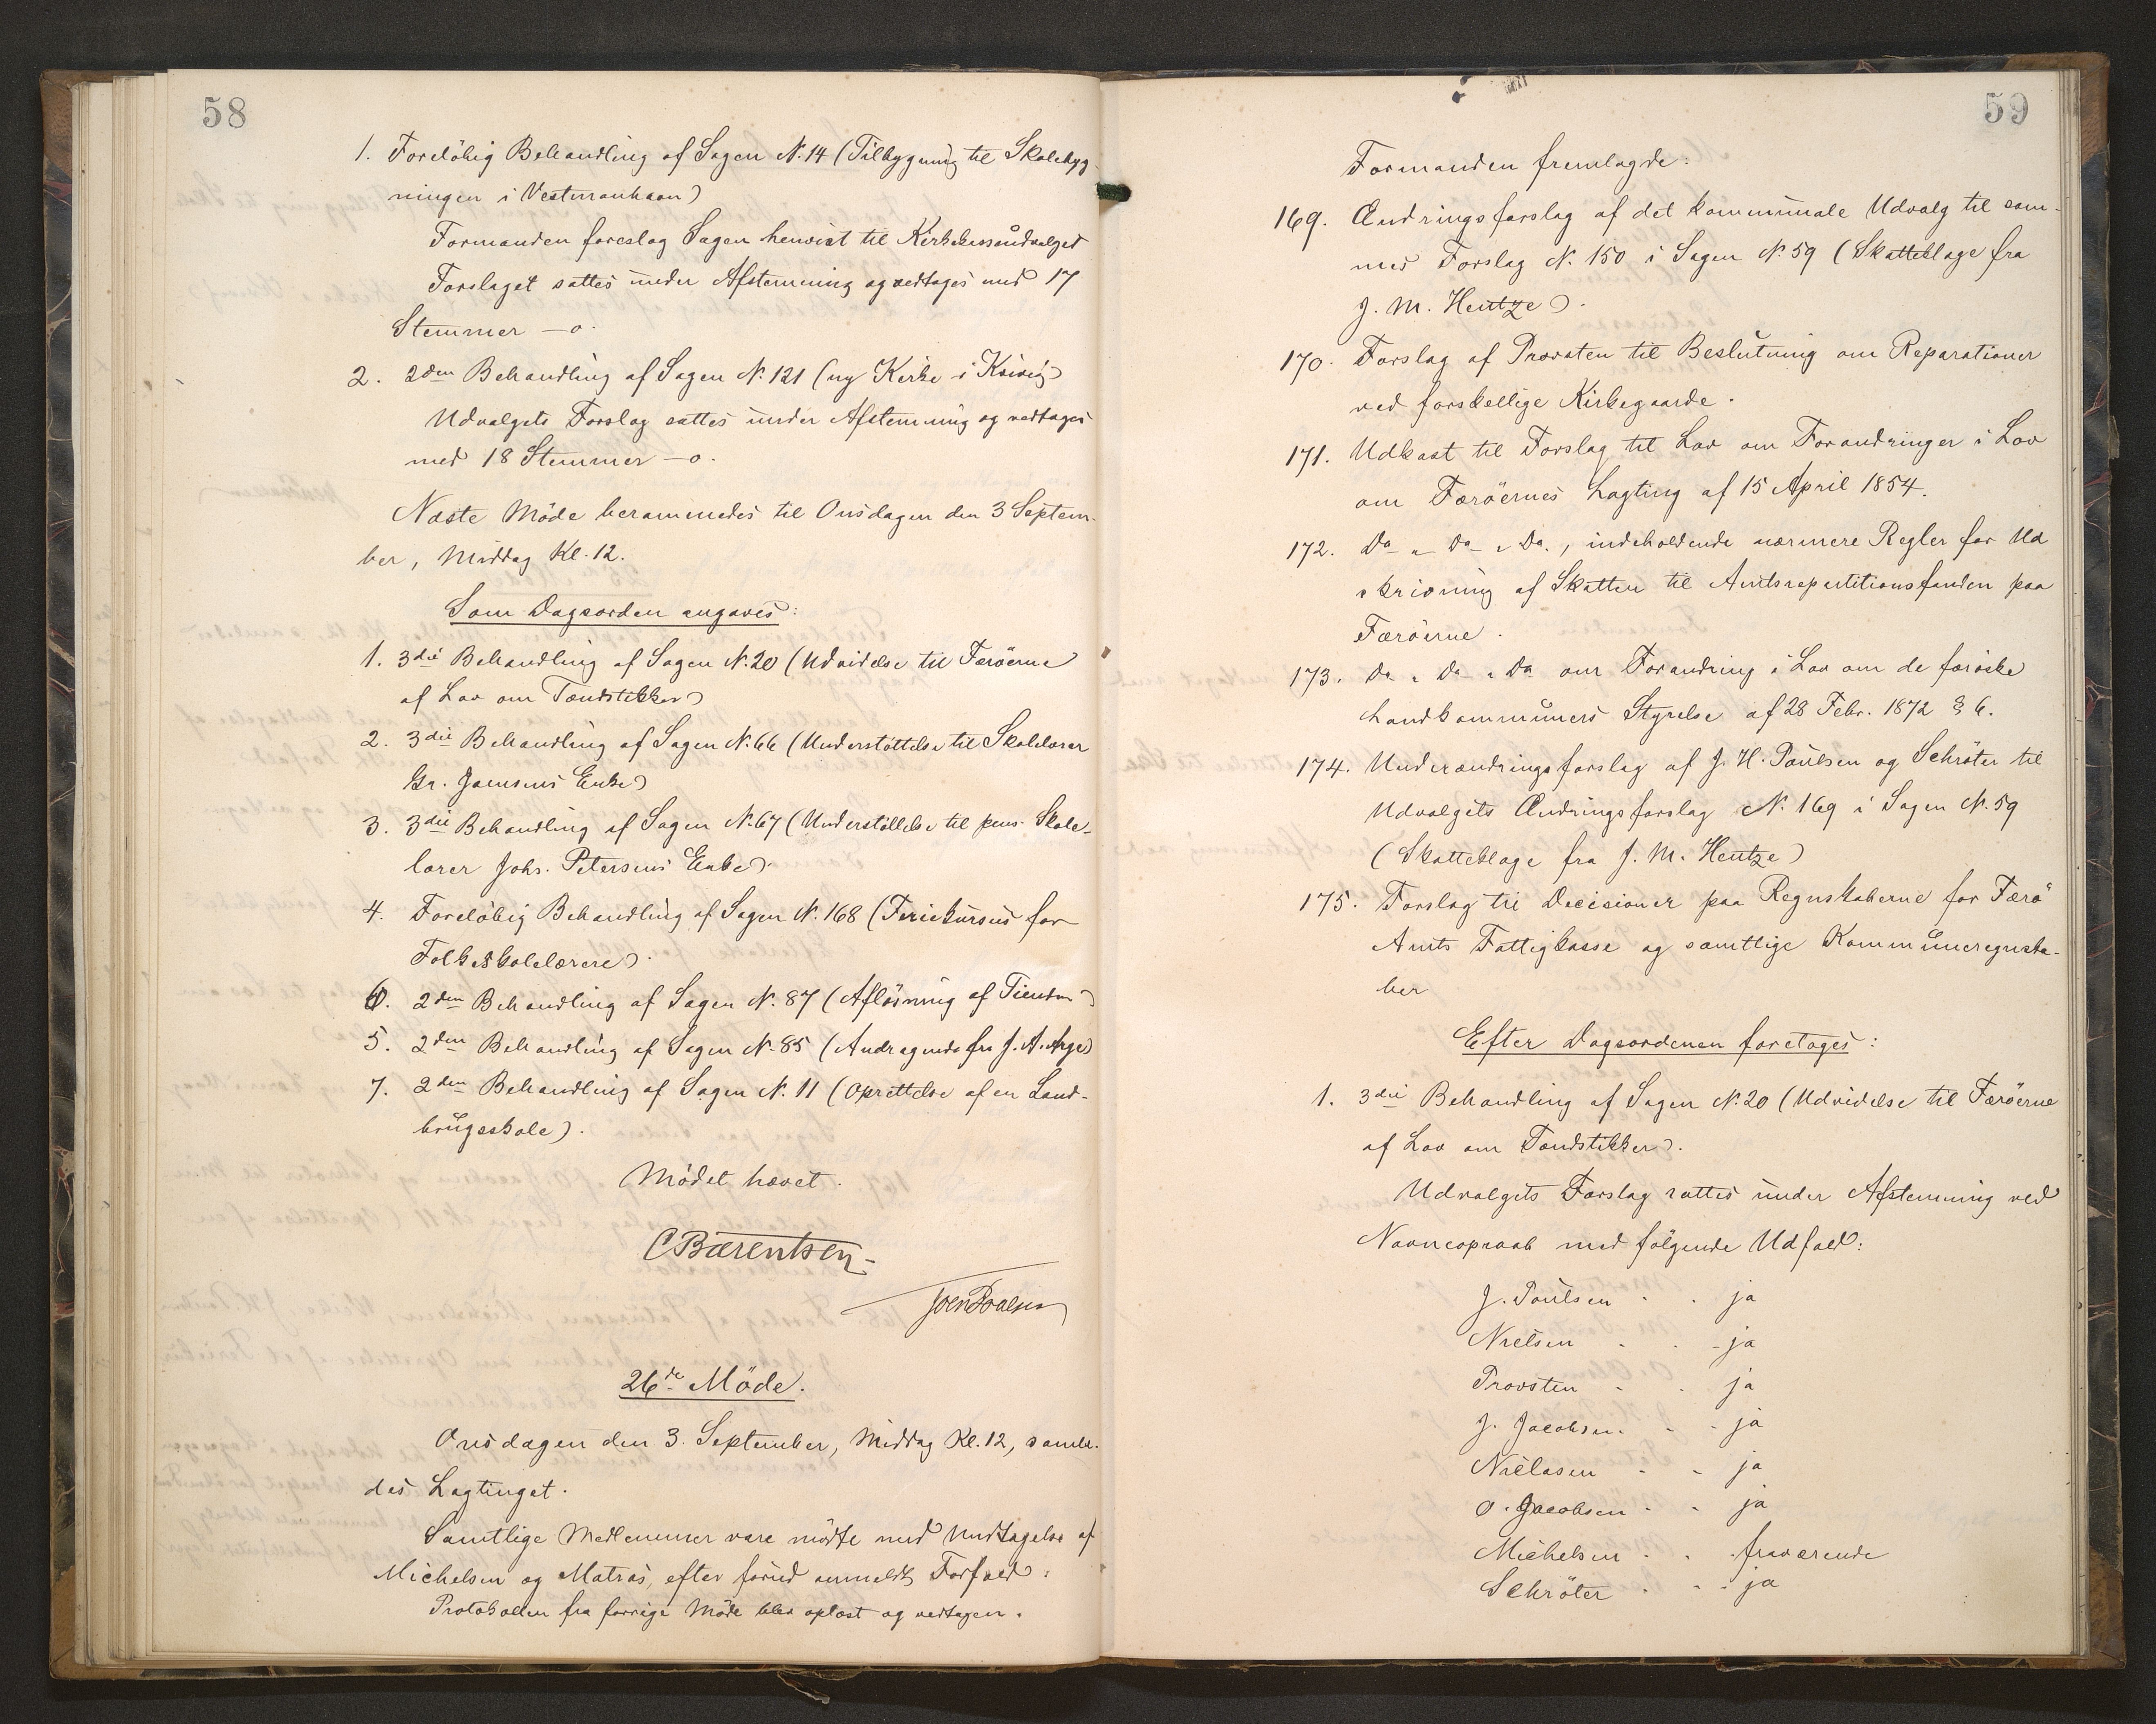 58
1. Foreløbig Behandling af Sagen N. 14 (Tilbygning til Skolebyg-
ningen i Vestmanhavn)
Formanden foreslog Sagen henvist til Kirkekasseudvalget
Forslaget sattes under Afstemning og vedtoges med 17
Stemmer – o.
2. 2den Behandling af Sagen N. 121 (ny Kirke i Kvivig)
Udvalgets Forslag sattes under Afstemning og vedtoges
med 18 Stemmer – o.
Næste Möde berammedes til Onsdagen den 3 Septem-
ber, Middag Kl. 12.
Som Dagsorden angaves:
1. 3die Behandling af Sagen N. 20 (Udvidelse til Færöerne
af Lov om Tændstikker)
2. 3die Behandling af Sagen N. 66 (Understöttelse til Skolelærer
Gr. Joensens Enke)
3. 3die Behandling af Sagen N. 67 (Understöttelse til pens. Skole-
lærer Johs. Petersens Enke).
4. Forelöbig Behandling af Sagen N. 168 (Feriekursus for
Folkeskolelærere).
6. 2den Behandling af Sagen N. 87 (Aflösning af Tienden)
5. 2den Behandling af Sagen N. 85 (Andragende fra J. A. Arge)
7. 2den Behandling af Sagen N. 11 (Oprettelse af en Land-
brugsskole).
Mödet hævet.
C Bærentsen
Joen Poulsen
26de Möde.
Onsdagen den 3. September, Middag Kl. 12, samle-
des Lagtinget.
Samtlige Medlemmer vare mödte med Undtagelse af
Michelsen og Matras, efter forud anmeldt Forfald.
Protokollen fra forrige Möde blev oplæst og vedtagen.
59
Formanden fremlagde:
169. Ændringsforslag af det kommunale Udvalg til sam-
mes Forslag N. 150 i Sagen N. 59 (Skatteklage fra
J. M. Hentze).
170. Forslag af Provsten til Beslutning om Reparationer
ved forskellige Kirkegaarde.
171. Udkast til Forslag til Lov om Forandringer i Lov
om Færöernes Lagting af 15 April 1854.
172. Do " Do " Do., indeholdende nærmere Regler for Ud
skrivning af Skatten til Amtsrepartitionsfonden paa
Færöerne.
173. Do " Do " Do om Forandring i Lov om de færöske
Landkommuners Styrelse af 28 Febr. 1872 § 6.
174. Underændringsforslag af J. H. Poulsen og Schröter til
Udvalgets Ændringsforslag N. 169 i Sagen N. 59
(Skatteklage fra J. M. Hentze)
175. Forslag til Decisioner paa Regnskaberne for Færö
Amts Fattigkasse og samtlige Kommuneregnska-
ber
Efter Dagsordenen foretoges:
1. 3die Behandling af Sagen N. 20 (Udvidelse til Færöerne
af Lov om Tændstikker).
Udvalgets Forslag sattes under Afstemning ved
Navneopraab med fölgende Udfald:
J. Poulsen . . ja
Nielsen . . ja
Provsten . . ja
J. Jacobsen . . ja
Niclasen . . ja
O. Jacobsen . . ja
Michelsen . . fraværende
Schröter . . ja